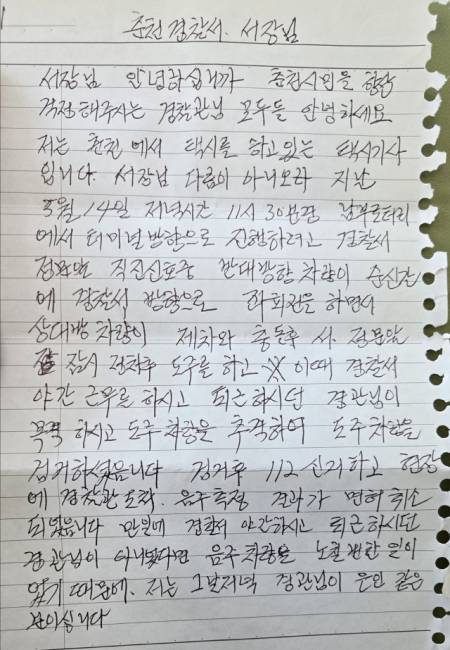 춘천경찰서. 서장님
서장님 안녕하십니까 춘천시민을 항상
걱정해주시는 경찰관님 모두들 안녕하세요
저는 춘천에서 택시를 하고있는 택시기사
입니다. 서장님 다름이 아니오라 지난
5월 14일 저녁시간 11시 30분경 남부로터리
에서 터미널방향으로 진행하려고 경찰서
정문앞 직진신호중 반대방향 차량이 순식간
에 경찰서 방향으로 좌회전을 하면서
상대방 차량이 제차와 충돌후 서. 정문앞
잠시 정차후 도주를 하고 이때 경찰서
야간 근무를 하시고 퇴근하시던 경관님이
목격 하시고 도주차량을 추격하여 도주차량을
검거하셨읍니다 검거후 112 신고하고 현장
에 경찰관 도착. 음주측정 결과가 면허취소
되였읍니다 만일에 경찰서 야간하시고 퇴근하시던
경관님이 아니였다면 음주차량을 노칠뻔한 일이
였기 때문에. 저는 그날저녁 경관님이 은인 같은
분이십니다